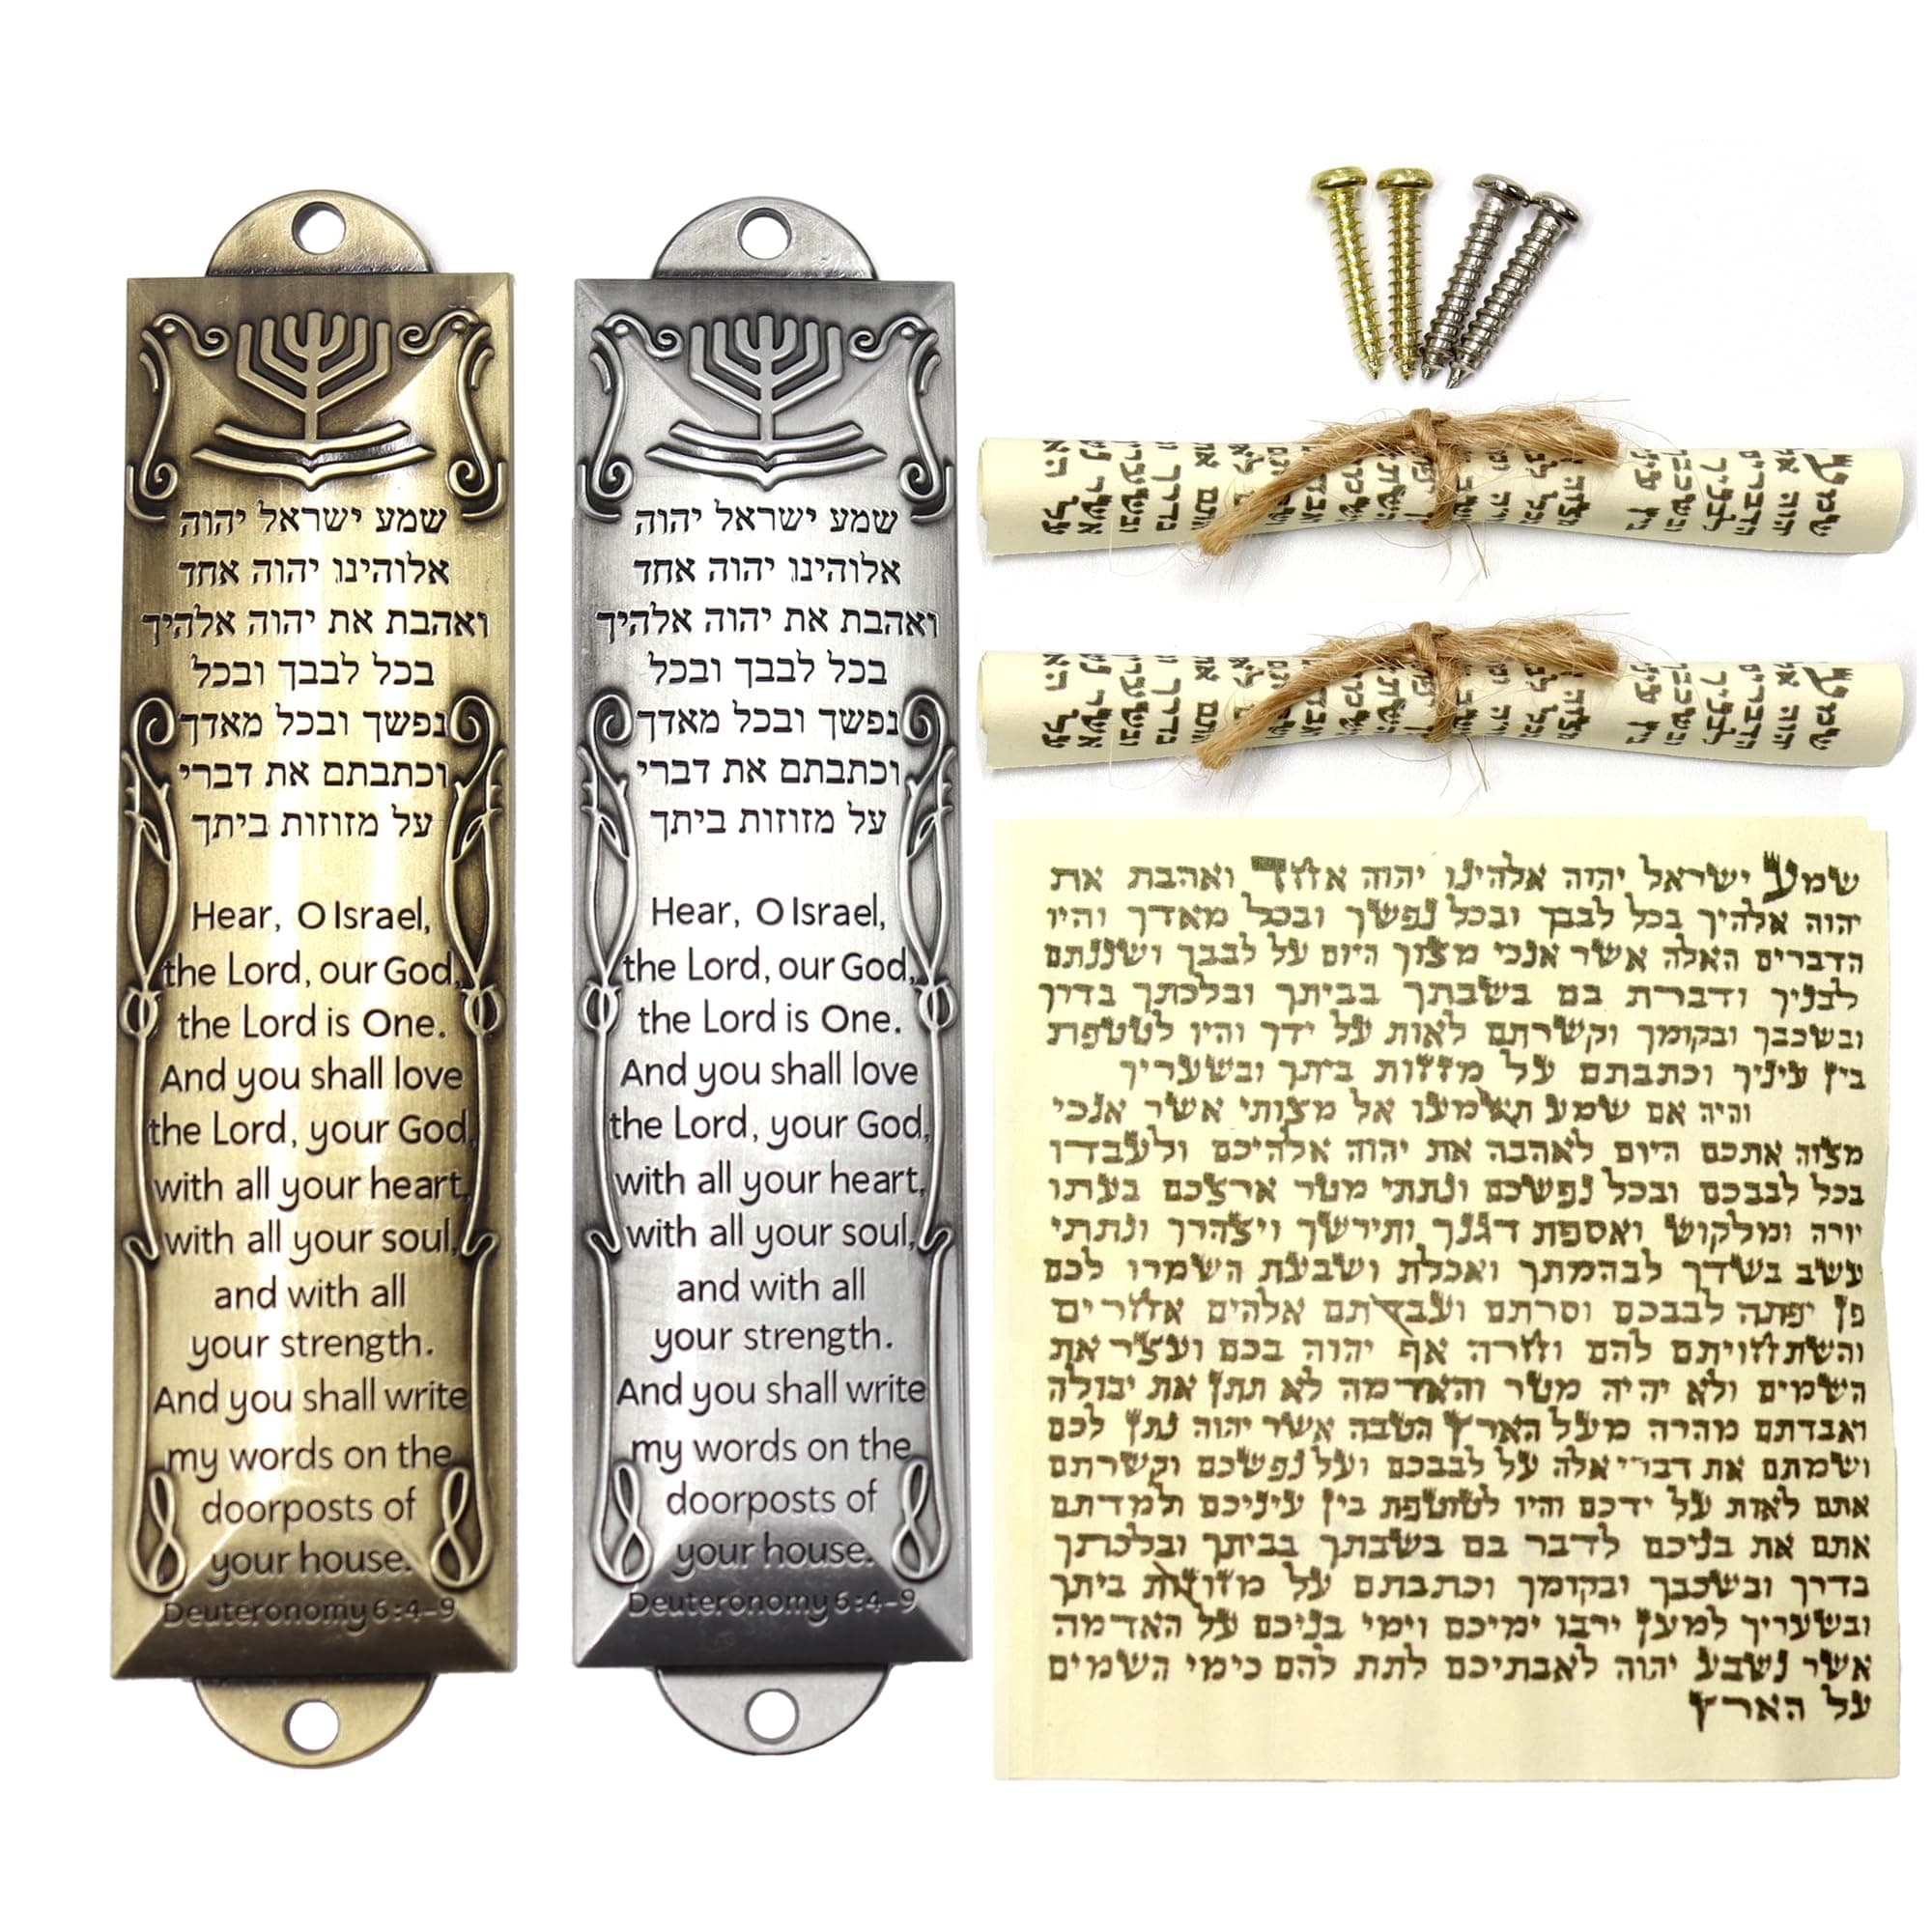 שמע ישראל יהוה
אלוהינו יהוה אחד
ואהבת את יהוה אלהיך
בכל לבבך ובכל
נפשך ובכל מאדך
וכתבתם את דברי
על מזוזות ביתך
Hear, O Israel,
the Lord, our God,
the Lord is One.
And you shall love
the Lord, your God,
with all your heart,
with all your soul,
and with all
your strength.
And you shall write
my words on the
doorposts of
your house.
Deuteronomy 6:4-9
שמע ישראל יהוה
אלוהינו יהוה אחד
ואהבת את יהוה אלהיך
בכל לבבך ובכל
נפשך ובכל מאדך
וכתבתם את דברי
על מזוזות ביתך
Hear, O Israel,
the Lord, our God,
the Lord is One.
And you shall love
the Lord, your God,
with all your heart,
with all your soul,
and with all
your strength.
And you shall write
my words on the
doorposts of
your house.
Deuteronomy 6:4-9
שמע ישראל יהוה אלהינו יהוה אחד ואהבת את
יהוה אלהיך בכל לבבך ובכל נפשך ובכל מאדך והיו
הדברים האלה אשר אנכי מצוך היום על לבבך ושננתם
לבניך ודברת בם בשבתך בביתך ובלכתך בדרך
ובשכבך ובקומך וקשרתם לאות על ידך והיו לטטפת
בין עיניך וכתבתם על מזזות ביתך ובשעריך
והיה אם שמע תשמעו אל מצותי אשר אנכי
מצוה אתכם היום לאהבה את יהוה אלהיכם ולעבדו
בכל לבבכם ובכל נפשכם ונתתי מטר ארצכם בעתו
יורה ומלקוש ואספת דגנך ותירשך ויצהרך ונתתי
עשב בשדך לבהמתך ואכלת ושבעת השמרו לכם
פן יפתה לבבכם וסרתם ועבדתם אלהים אחרים
והשתחויתם להם וחרה אף יהוה בכם ועצר את
השמים ולא יהיה מטר והאדמה לא תתן את יבולה
ואבדתם מהרה מעל הארץ הטבה אשר יהוה נתן לכם
ושמתם את דברי אלה על לבבכם ועל נפשכם וקשרתם
אתם לאות על ידכם והיו לטוטפת בין עיניכם ולמדתם
אתם את בניכם לדבר בם בשבתך בביתך ובלכתך
בדרך ובשכבך ובקומך וכתבתם על מזוזות ביתך
ובשעריך למען ירבו ימיכם וימי בניכם על האדמה
אשר נשבע יהוה לאבתיכם לתת להם כימי השמים
על הארץ